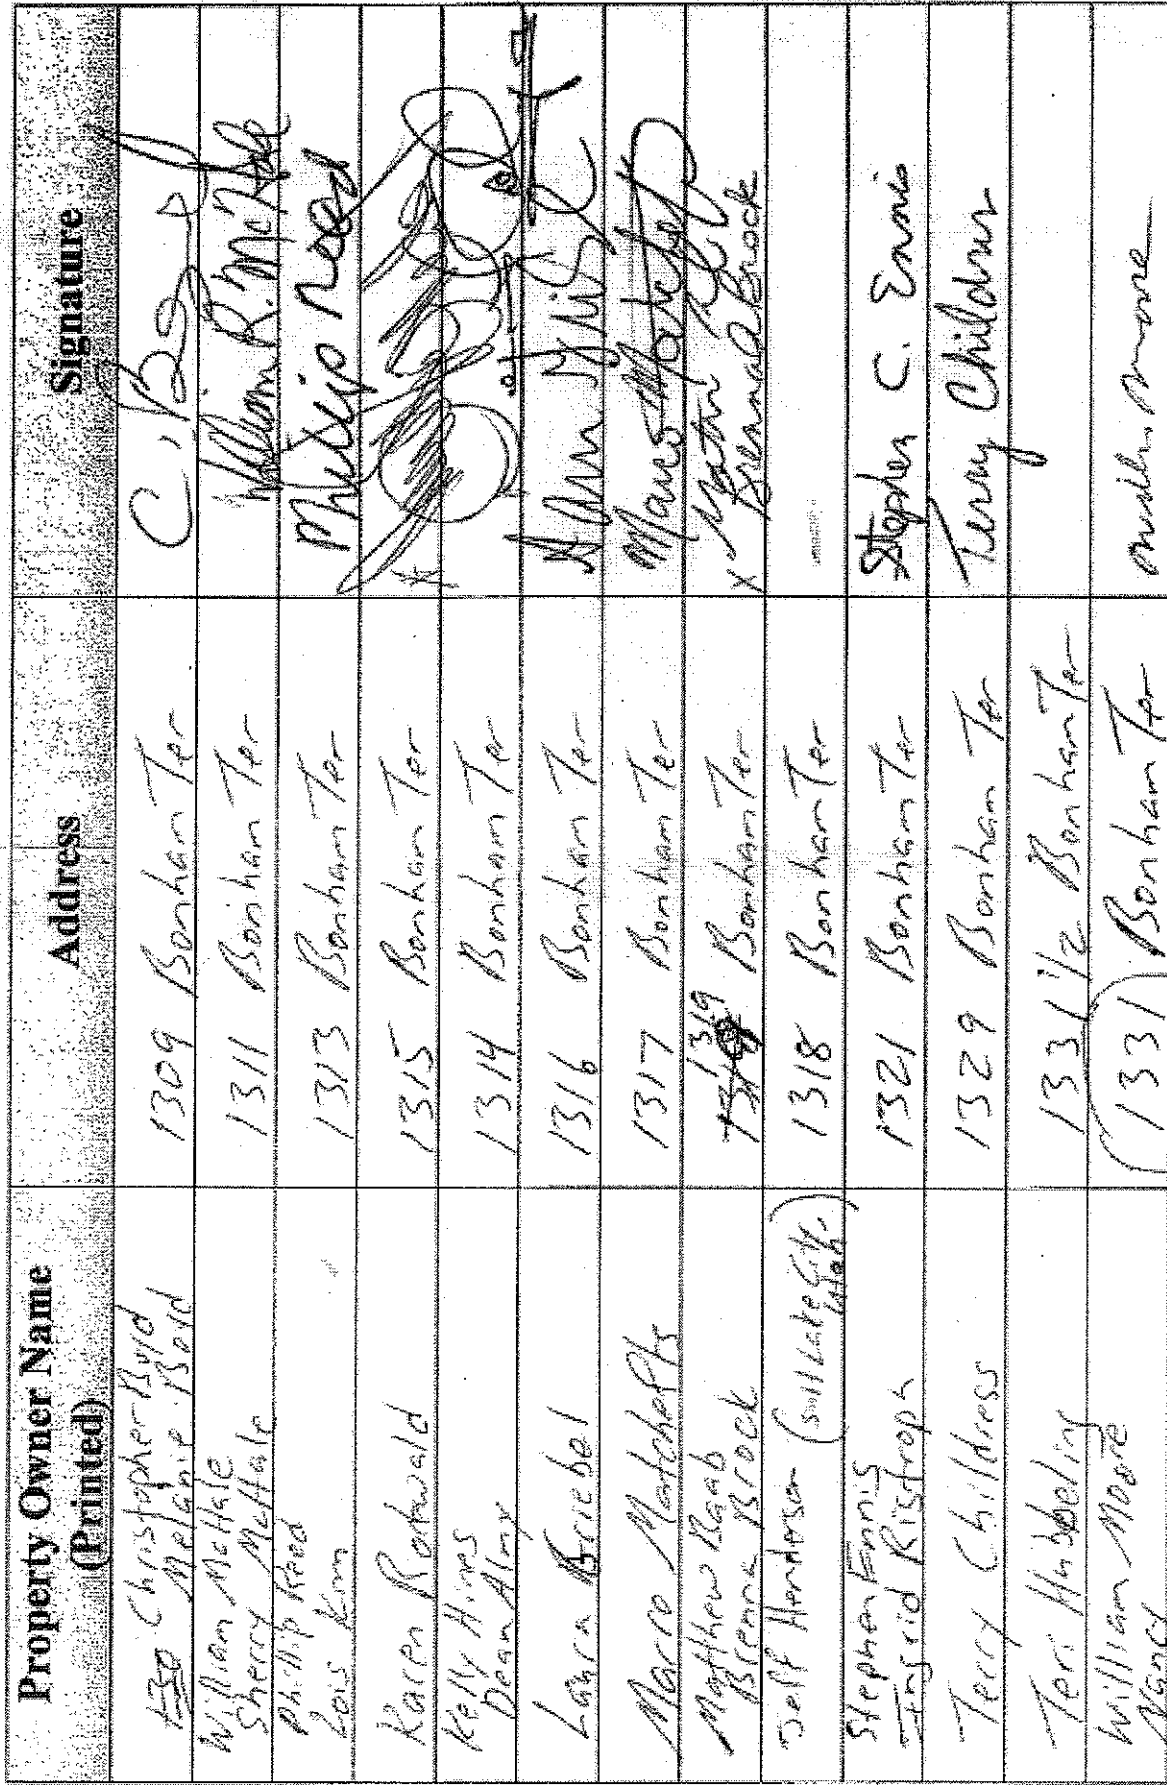 Property Owner Name
(Printed)
Address
Signature
Christopher Boyd
Melanie Boyd
1309 Bonham Ter
C. Boyd
William McHale
Sherry McHale
1311 Bonham Ter
William R. McHale
Phillip Reed
Lois Kim
1313 Bonham Ter
Philip Reed
Karen Rodewald
1315 Bonham Ter
Kelly Hines
Dean Almy
1314 Bonham Ter
Laura Briebel
1316 Bonham Ter
Marco Matchefts
1317 Bonham Ter
Matthew Baab
Brenna Brock
1319 Bonham Ter
x
Brenna Brock
Jeff Henderson (Salt Lake City, Utah)
1318 Bonham Ter
Stephen Ennis
Ingrid Ristroph
1321 Bonham Ter
Stephen C. Ennis
Terry Childress
1329 Bonham Ter
Terry Childress
Teri
1331 1/2 Bonham Ter
William Moore
Nancy
(1331) Bonham Ter
Moore